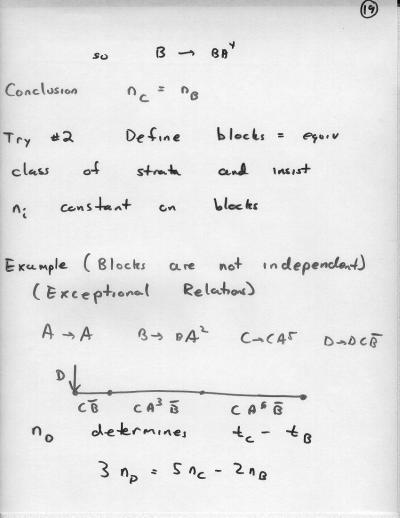 19
so B → BA^4
Conclusion n_C = n_B
Try #2 Define blocks = equiv
class of strata and insist
n_i constant on blocks
Example (Blocks are not independent)
(Exceptional Relations)
A → A B → BA^2 C → CA^5 D → DCB̄
D
CB̄ CA^3B̄ CA^6B̄
n_D determines t_C - t_B
3 n_D = 5 n_C - 2 n_B